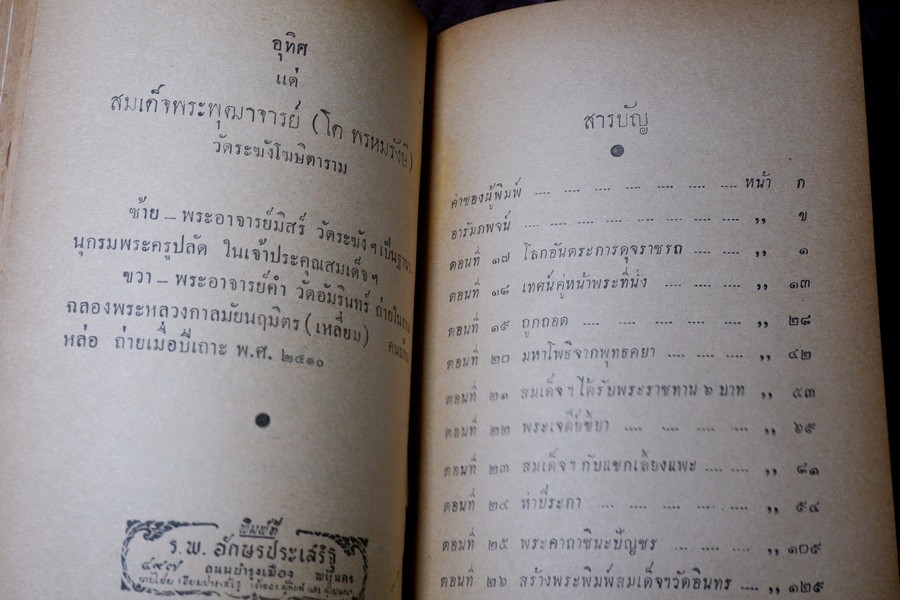 อุทิศ
แด่
สมเด็จพระพุฒาจารย์ (โต พรหมรังษี)
วัดระฆังโฆษิตาราม
ซ้าย – พระอาจารย์มิสร์ วัดระฆังฯ เป็นฐานา
นุกรมพระครูปลัด ในเจ้าประคุณสมเด็จฯ
ขวา – พระอาจารย์คำ วัดอัมรินทร์ ถ่ายในงาน
ฉลองพระหลวงกาลมัยนฤมิตร (เหลี่ยม)
หล่อ ถ่ายเมื่อปีเถาะ พ.ศ. ๒๔๑๐
พิมพ์ที่
ร.พ. อักษรประเสริฐ
๔๙๗ ถนนบำรุงเมือง พระนคร
สารบัญ
คำของผู้พิมพ์ .... .... .... .... .... .... หน้า ก
อารัมภพจน์ .... .... .... .... .... .... ,, ข
ตอนที่ ๑๗ โลกอันตระการดุจราชรถ .... .... ,, ๑
ตอนที่ ๑๘ เทศน์คู่หน้าพระที่นั่ง .... .... .... ,, ๑๓
ตอนที่ ๑๙ ถูกถอด .... .... .... .... ,, ๒๘
ตอนที่ ๒๐ มหาโพธิจากพุทธคยา .... .... .... ,, ๔๒
ตอนที่ ๒๑ สมเด็จฯ ได้รับพระราชทาน ๖ บาท ,, ๕๓
ตอนที่ ๒๒ พระเจดีย์ชิยา .... .... .... .... ,, ๖๕
ตอนที่ ๒๓ สมเด็จฯ กับแขกเลี้ยงแพะ .... .... ,, ๘๑
ตอนที่ ๒๔ ห่าปีระกา .... .... .... .... ,, ๙๔
ตอนที่ ๒๕ พระคาถาชินะปัญชร .... .... .... ,, ๑๐๕
ตอนที่ ๒๖ สร้างพระพิมพ์สมเด็จฯวัดอินทร .... ,, ๑๒๕